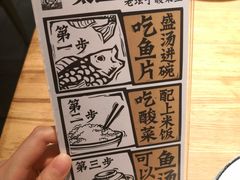 老坛子酸菜鱼
第一步
吃鱼片
盛汤进碗
第二步
吃酸菜
配上米饭
第三步
可以
鱼汤